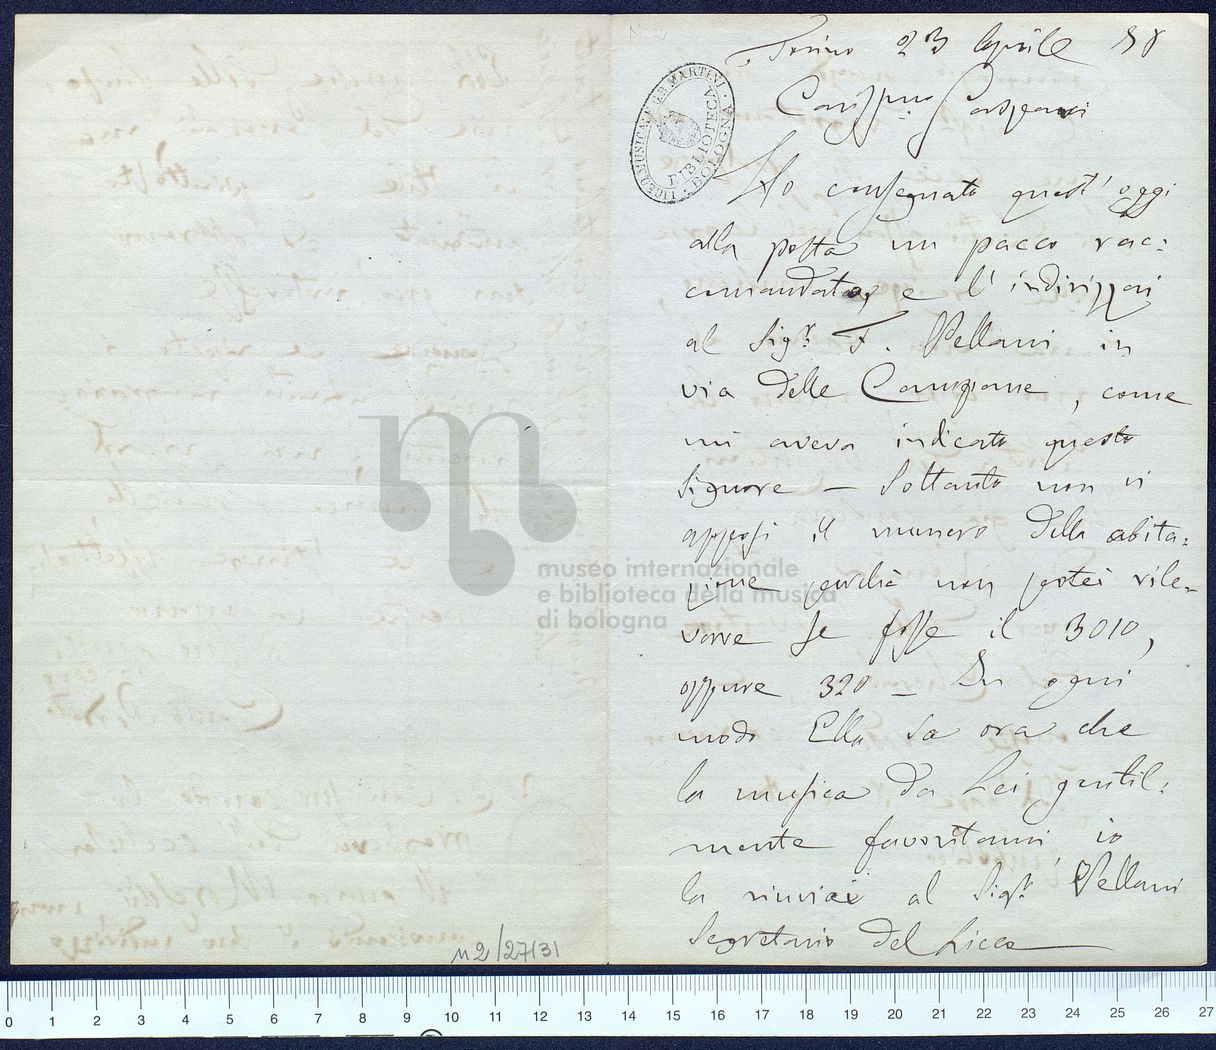 Torino 23 Aprile 88
Cariss.mo Gasperini
Ho consegnato quest'oggi
alla posta un pacco rac:
comandato, e l'indirizzai
al Sig.r F. Vellani in
via delle Campane, come
mi aveva indicato questo
signore — Soltanto non vi
apposi il numero della abita:
zione perchè non potei rile-
varre se fosse il 3010,
oppure 320 — In ogni
modo Ella sa ora che
la musica da Lei gentil:
mente favoritami, io
la rinviai al Sig.r Vellani
Segretario del Liceo
LICEO MUSICALE G.B. MARTINI
BIBLIOTECA
BOLOGNA
museo internazionale
e biblioteca della musica
di bologna
0 1 2 3 4 5 6 7 8 9 10 11 12 13 14 15 16 17 18 19 20 21 22 23 24 25 26 27